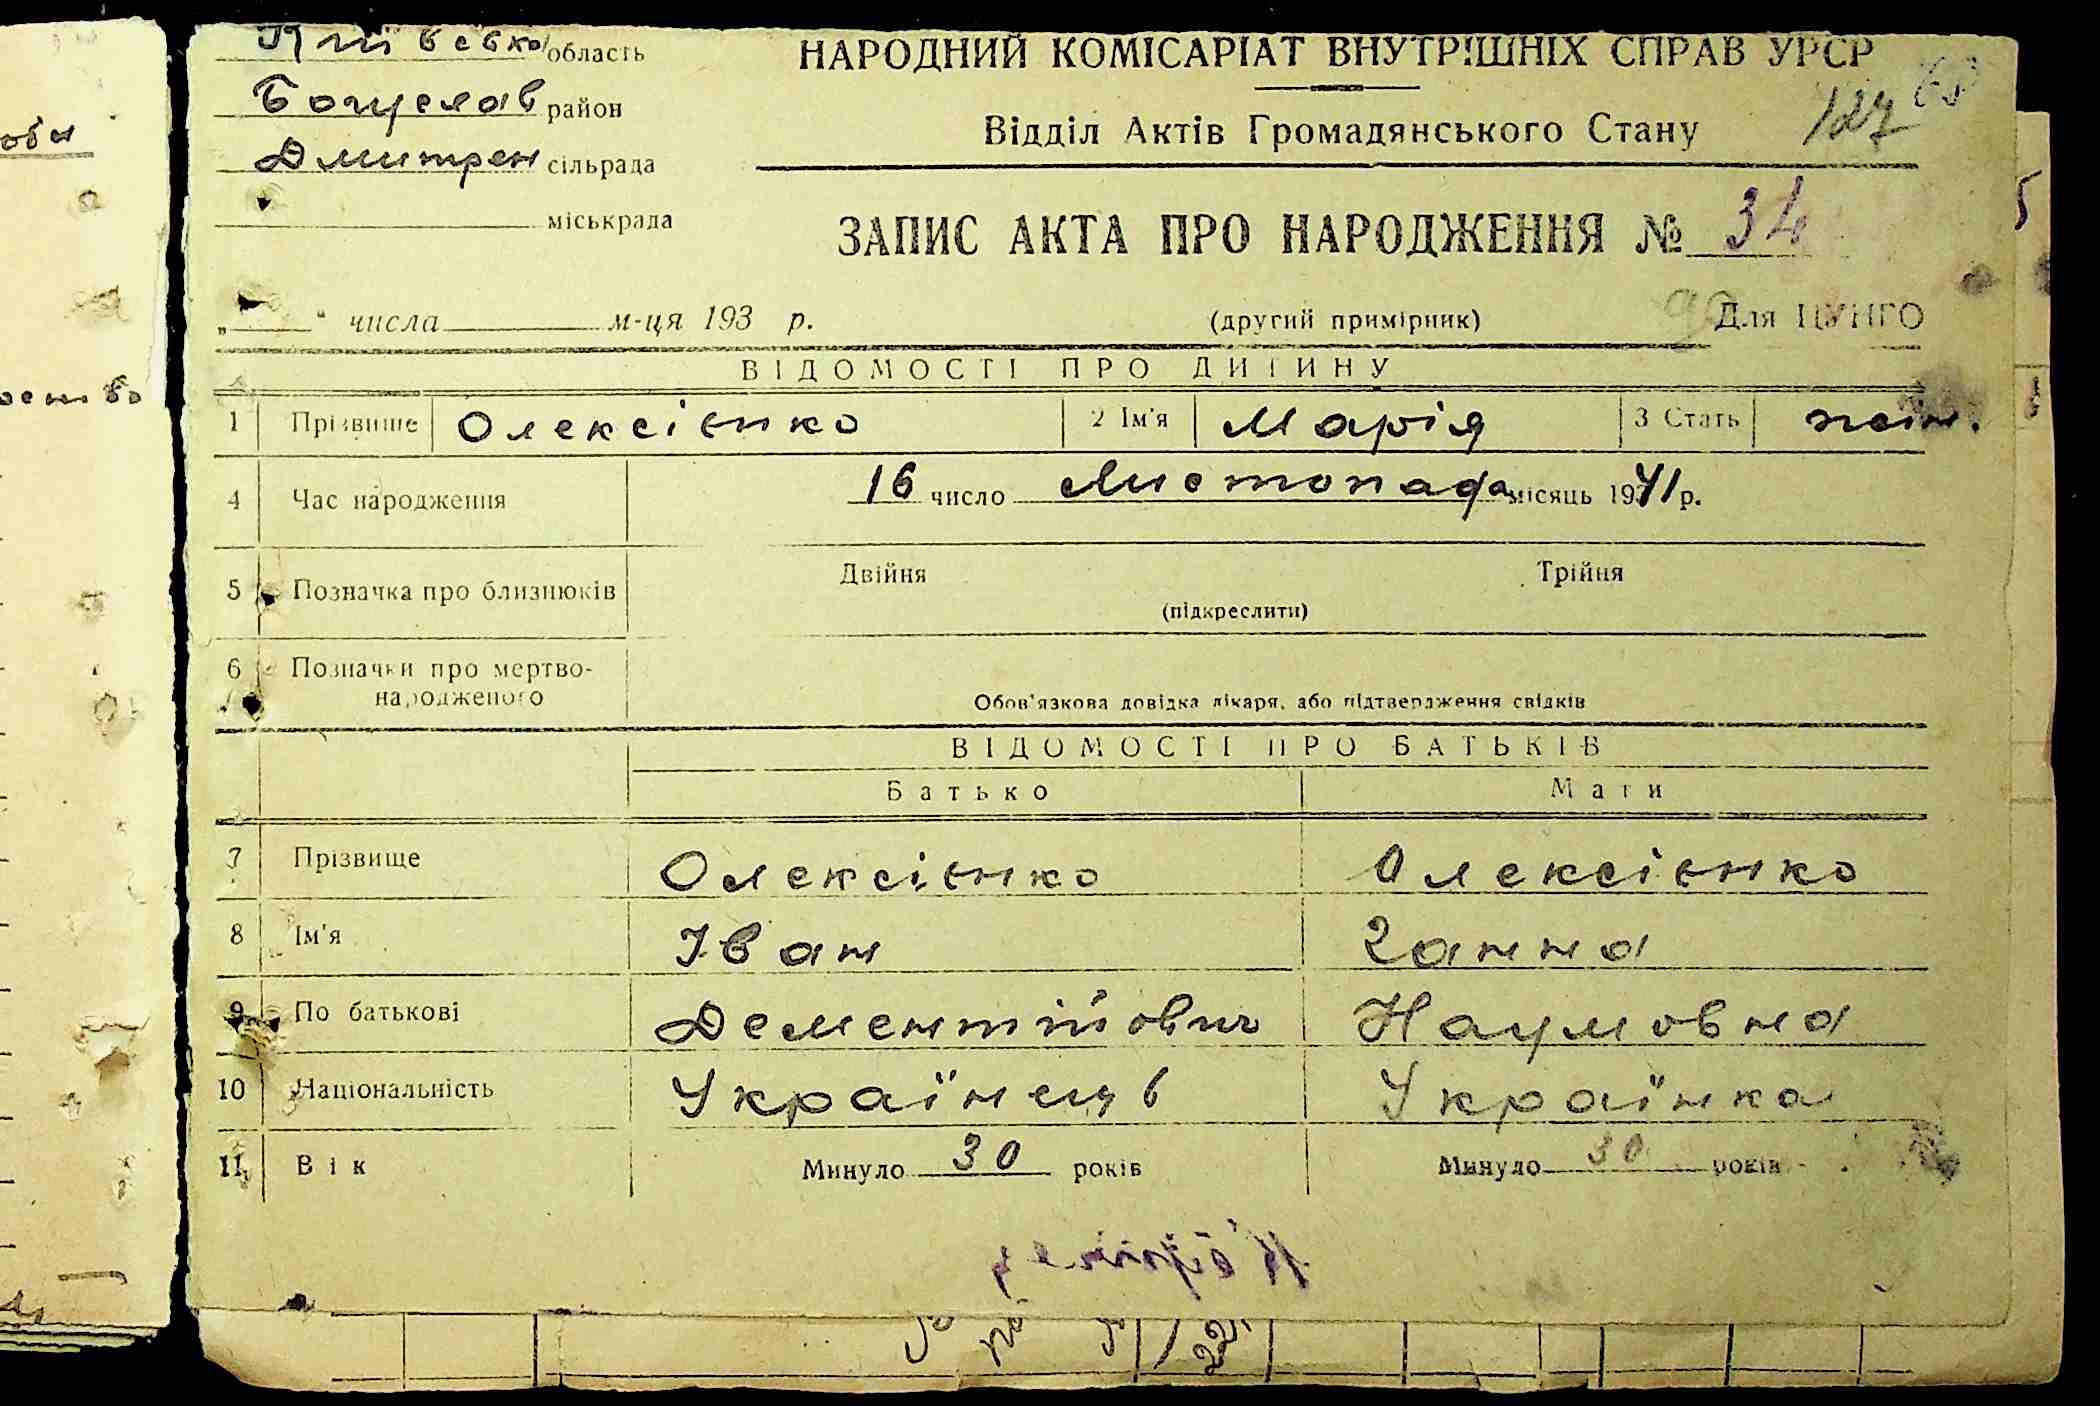 Київсько область
Богуслав район
Дмитрен сільрада
міськрада
НАРОДНИЙ КОМІСАРІАТ ВНУТРІШНІХ СПРАВ УРСР
127
Відділ Актів Громадянського Стану
ЗАПИС АКТА ПРО НАРОДЖЕННЯ № 34
„ “ числа м-ця 193 р.
(другий примірник) Для ЦУНГО
ВІДОМОСТІ ПРО ДИТИНУ
1 Прізвище Олексієнко 2 Ім'я Марія 3 Стать жін.
4 Час народження 16 число Листопада місяць 1941 р.
5 Позначка про близнюків Двійня Трійня
(підкреслити)
6 Позначки про мертво-
народженого Обов'язкова довідка лікаря, або підтвердження свідків
ВІДОМОСТІ ПРО БАТЬКІВ
Батько Мати
7 Прізвище Олексієнко Олексієнко
8 Ім'я Іван Ганна
9 По батькові Дементійович Наумовна
10 Національність Українець Українка
11 Вік Минуло 30 років Минуло 30 років